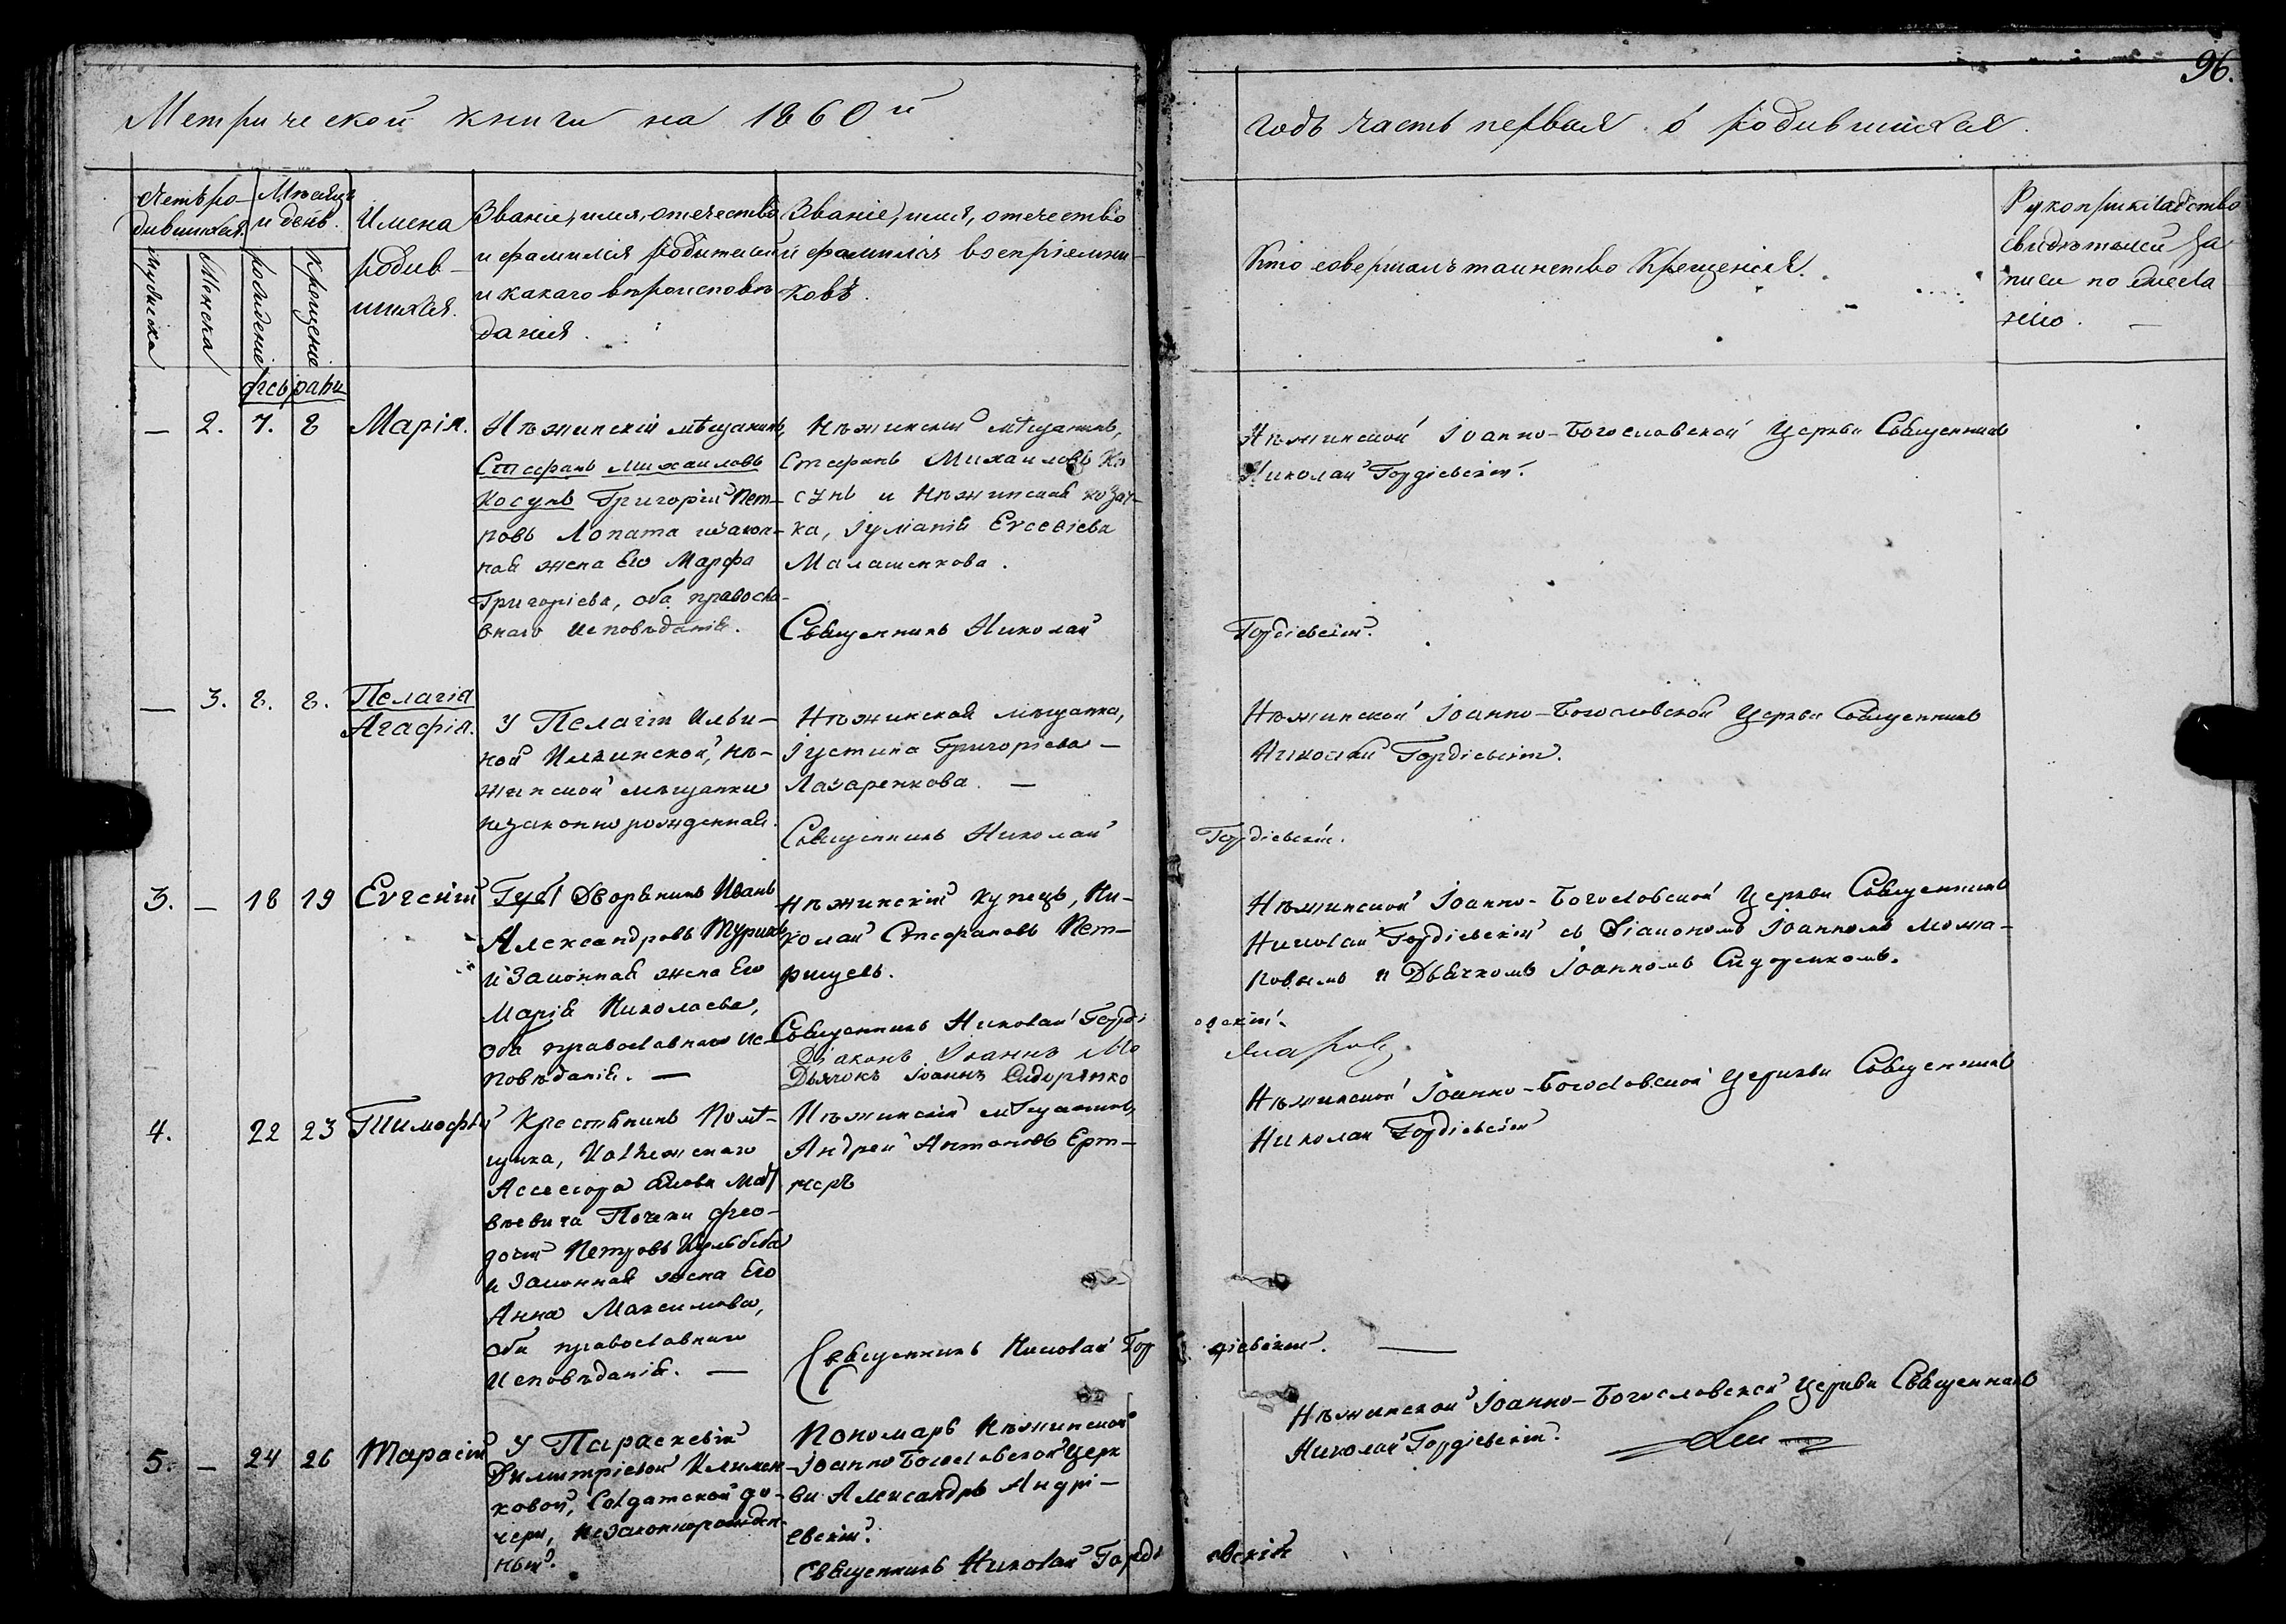 96.
Метрической книги на 1860й
годъ часть первая о родившихся.
Счетъ родившихся.
Мѣсяцъ и день.
Мужеска
Женска
Рожденіе
Крещеніе
Имена
родив-
шихся.
Званіе, имя, отечество
и фамилія родителей
и какого вѣроисповѣ
данія.
Званіе, имя, отечество
и фамилія воспріемни-
ковъ.
Кто совершалъ таинство Крещенія.
Рукоприкладство
свидѣтелей за
писи по жела
нію.
Февраль
— 2. 7. 8 Марія.
Нѣжинскій мѣщанинъ,
Стефанъ Михаиловъ
Косунъ Григорій Пет-
ровъ Лопата и закон-
ная жена Его Марфа
Григоріева, оба правосла-
внаго исповѣданія.
Нѣжинскій мѣщанинъ,
Стефанъ Михаиловъ Ко
сунъ и Нѣжинская козач-
ка, Іуліанія Евсевіева
Малашенкова.
Священникъ Николай
Гордіевскій.
Нѣжинской Іоанно-Богословской Церкви Священникъ
Николай Гордіевскій.
— 3. 8. 8. Пелагія
Агафія.
У Пелагіи Ильи-
ной Ильинской, Нѣ-
жинской мѣщанки
незаконнорожденная.
Нѣжинская мѣщанка,
Іустина Григоріева —
Лазаренкова. —
Священникъ Николай
Гордіевскій.
Нѣжинской Іоанно-Богословской Церкви Священникъ
Николай Гордіевскій.
3. — 18 19 Евгеній
Губ. Дворянинъ Иванъ
Александровъ
и Законная жена Его
Марія Николаева,
оба православнаго ис-
повѣданія. —
Нѣжинскій купецъ, Ни-
колай Стефановъ Пет-
Священникъ Николай Горді
евскій.
Діаконъ Іоаннъ Мо
жаровъ
Дьячокъ Іоаннъ Сидоренко
Нѣжинской Іоанно-Богословской Церкви Священникъ
Николай Гордіевскій съ Діакономъ Іоанномъ Можа-
ровымъ и Дьячкомъ Іоанномъ Сидоренкомъ.
4. 22 23 Тимофей
Крестьянинъ Помѣ-
щика, Коллежскаго
Ассесора Мат
вѣевича Почеки Фео-
досій Петровъ
и Законная жена Его
Анна Максимова,
оба православнаго
исповѣданія. —
Нѣжинскій мѣщанинъ,
Андрей Антоновъ
Священникъ Николай Гор
діевскій. —
Нѣжинской Іоанно-Богословской Церкви Священникъ
Николай Гордіевскій
5. — 24 26 Тарасій
У Параскевіи
Димитріевой Климен-
ковой, Солдатской до-
чери, незаконнорожден-
ный.
Пономарь Нѣжинской
Іоанно Богословской Церк
ви Александръ Андрі-
евскій.
Священникъ Николай Горді
евскій
Нѣжинской Іоанно-Богословской Церкви Священникъ
Николай Гордіевскій.